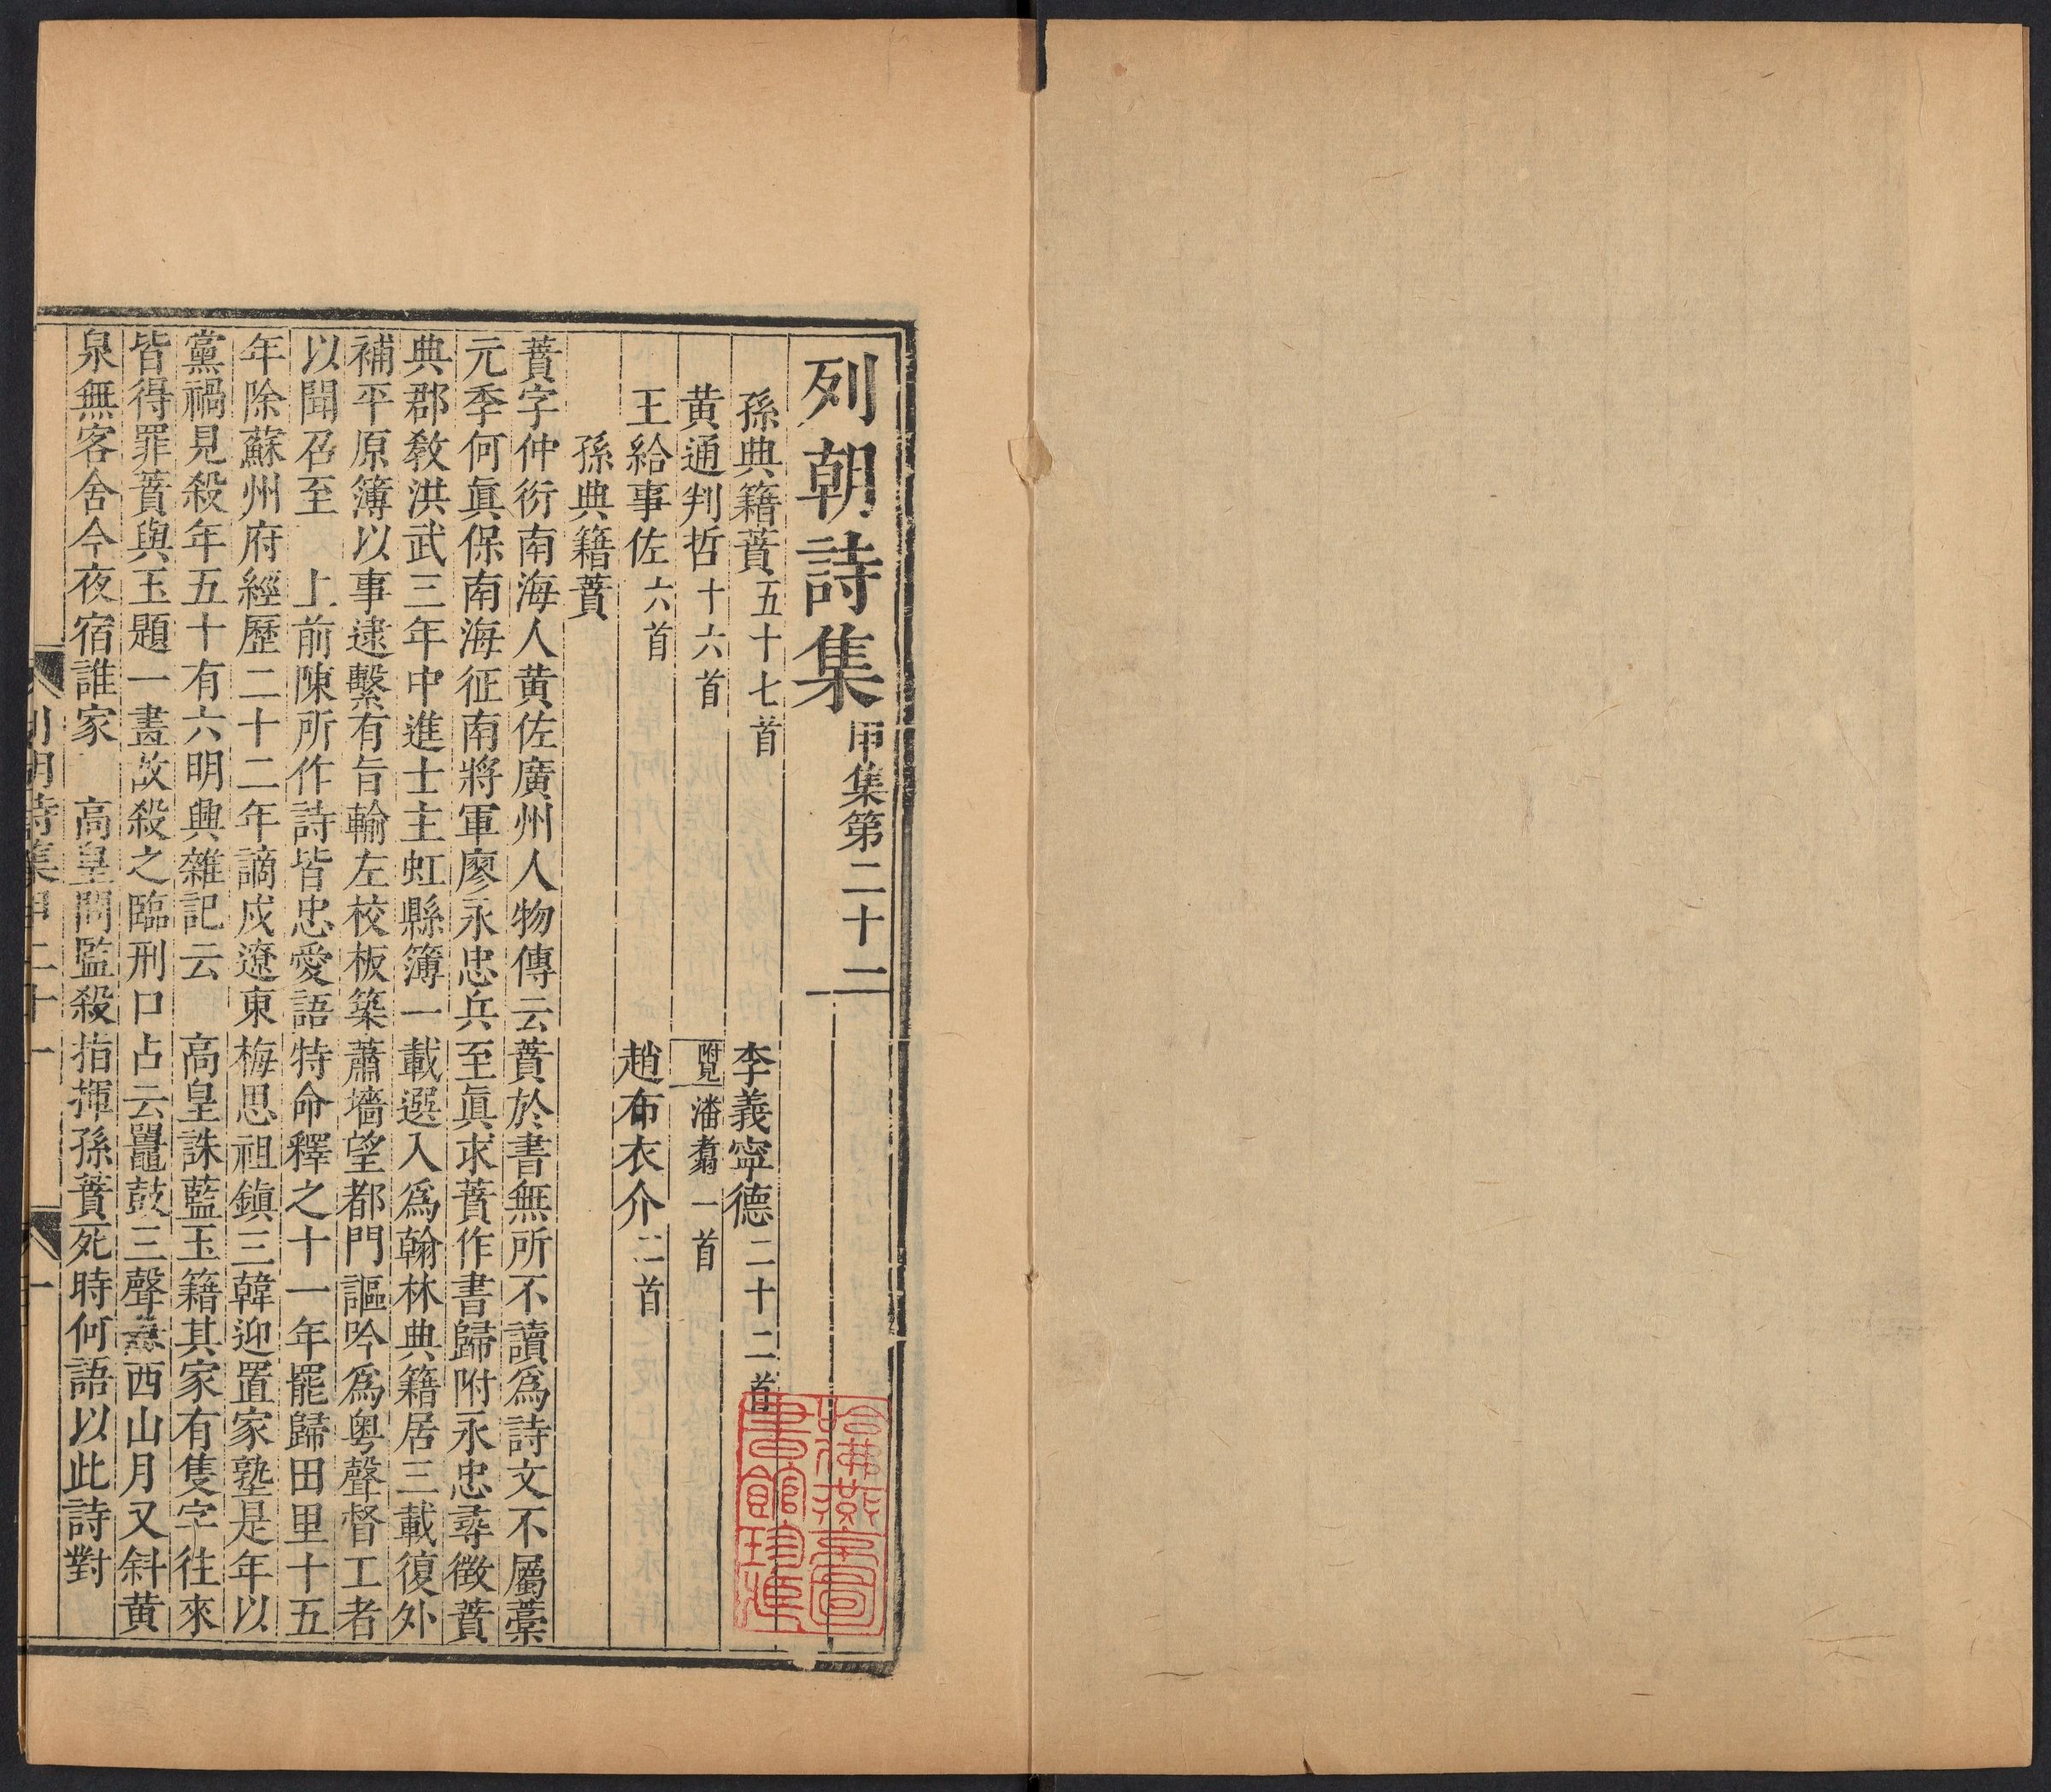 列朝詩集 甲集第二十二
孫典籍蕡 五十七首 李義寧德 二十二首
黃通判哲 十六首 附見 潘翥 一首
王給事佐 六首 趙布衣介 二首
孫典籍蕡
蕡字仲衍南海人黃佐廣州人物傳云蕡於書無所不讀爲詩文不屬藁
元季何眞保南海征南將軍廖永忠兵至眞求蕡作書歸附永忠尋徵蕡
典郡敎洪武三年中進士主虹縣簿一載選入爲翰林典籍居三載復外
補平原簿以事逮繫有旨輸左校板築蕭墻望都門謳吟爲粵聲督工者
以聞召至 上前陳所作詩皆忠愛語特命釋之十一年罷歸田里十五
年除蘇州府經歷二十二年謫戍遼東梅思祖鎮三韓迎置家塾是年以
黨禍見殺年五十有六明興雜記云 高皇誅藍玉籍其家有隻字往來
皆得罪蕡與玉題一畫故殺之臨刑口占云鼉鼓三聲西山月又斜黃
泉無客舍今夜宿誰家 高皇問監殺指揮孫蕡死時何語以此詩對
列朝詩集甲二十一 一
哈佛燕京圖
書館珍藏